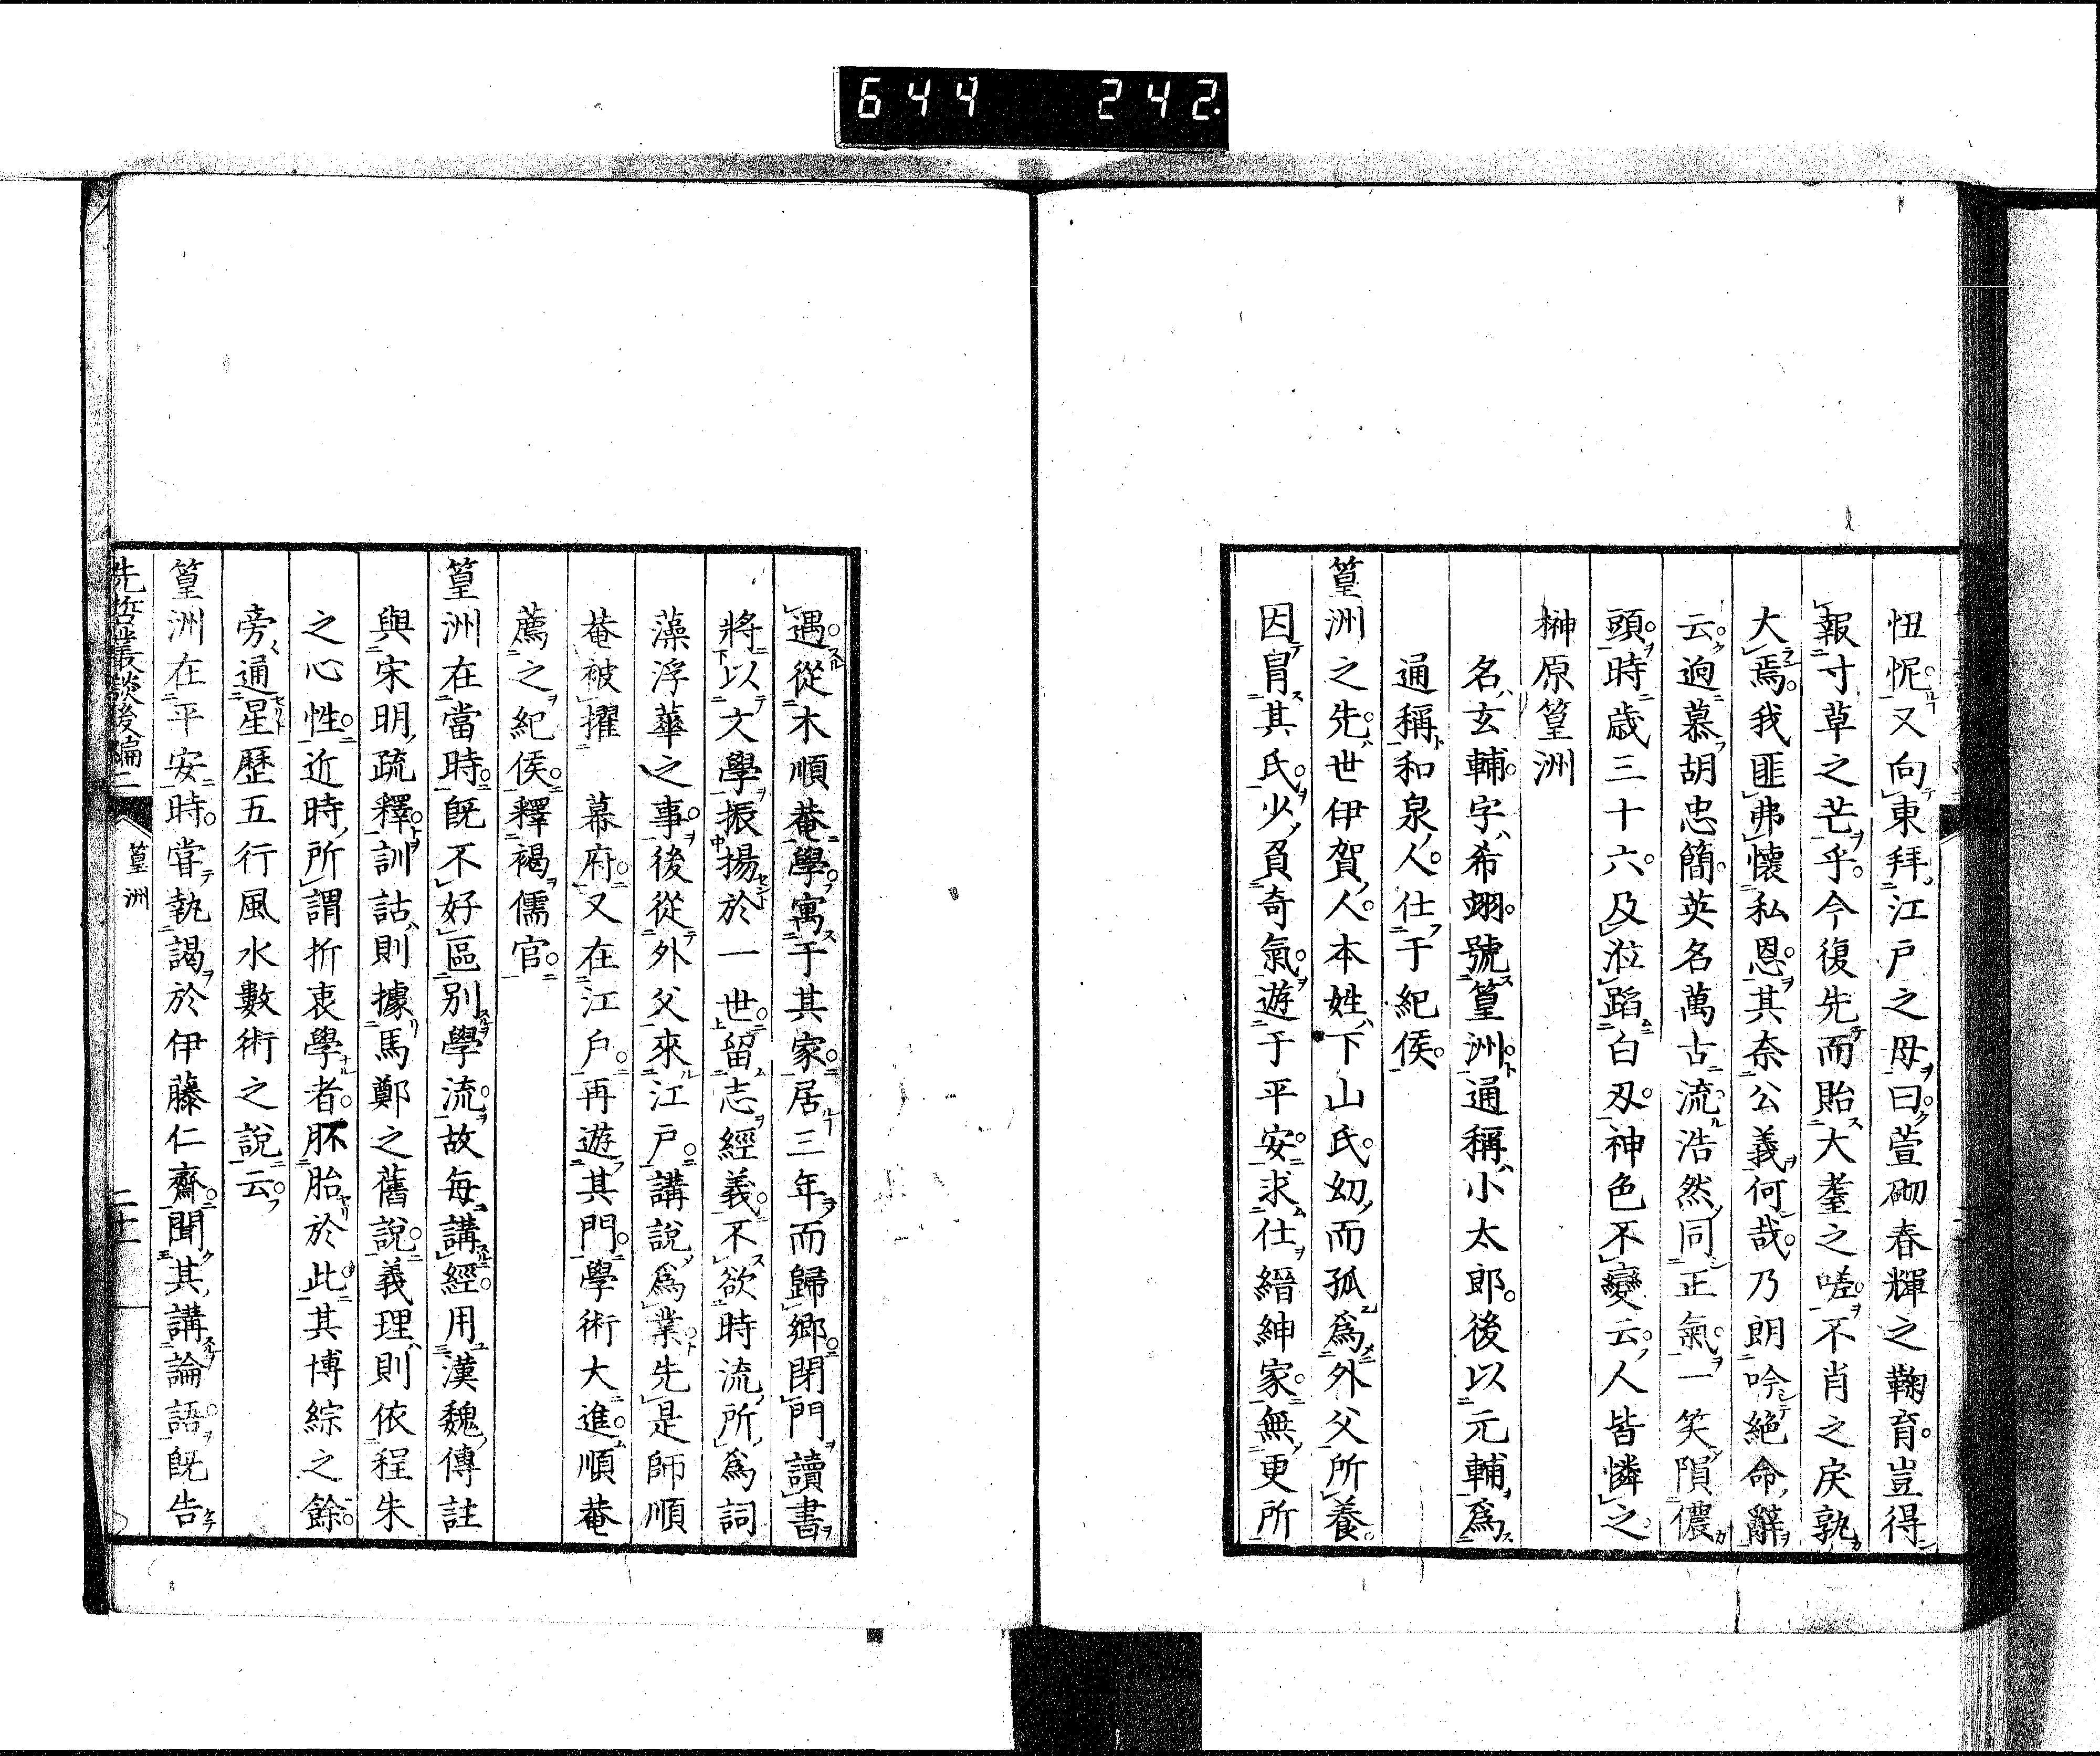 644 242
忸怩又向東拜江戶之母曰萱砌春輝之鞠育豈得
報寸草之芒乎今復先而貽大耋之嗟不肖之戾孰
大焉我匪弗懷私恩其奈公義何哉乃朗吟絕命辭
云逈慕胡忠簡英名萬古流浩然同正氣一笑隕儂
頭時歲三十六及涖蹈白刃神色不變云人皆憐之
榊原篁洲
名玄輔字希翊號篁洲通稱小太郎後以元輔爲
通稱和泉人仕于紀侯
篁洲之先世伊賀人本姓下山氏幼而孤爲外父所養
因冒其氏少負奇氣遊于平安求仕縉紳家無更所
遇從木順菴學寓于其家居三年而歸鄉閉門讀書
將以文學振揚於一世留志經義不欲時流所爲詞
藻浮華之事後從外父來江戶講說爲業先是師順
菴被擢 幕府又在江戶再遊其門學術大進順菴
薦之紀侯釋褐儒官
篁洲在當時既不好區別學流故每講經用漢魏傳註
與宋明疏釋訓詁則據馬鄭之舊說義理則依程朱
之心性近時所謂折衷學者胚胎於此其博綜之餘
旁通星歷五行風水數術之說云
篁洲在平安時嘗執謁於伊藤仁齋聞其講論語既告
先哲叢談後編二 篁洲 二十一